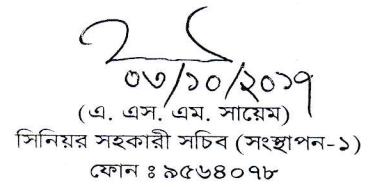 ০৩/১০/২০১৭
(এ. এস. এম. সায়েম)
সিনিয়র সহকারী সচিব (সংস্থাপন-১)
ফোন ঃ ৯৫৬৪০৭৮